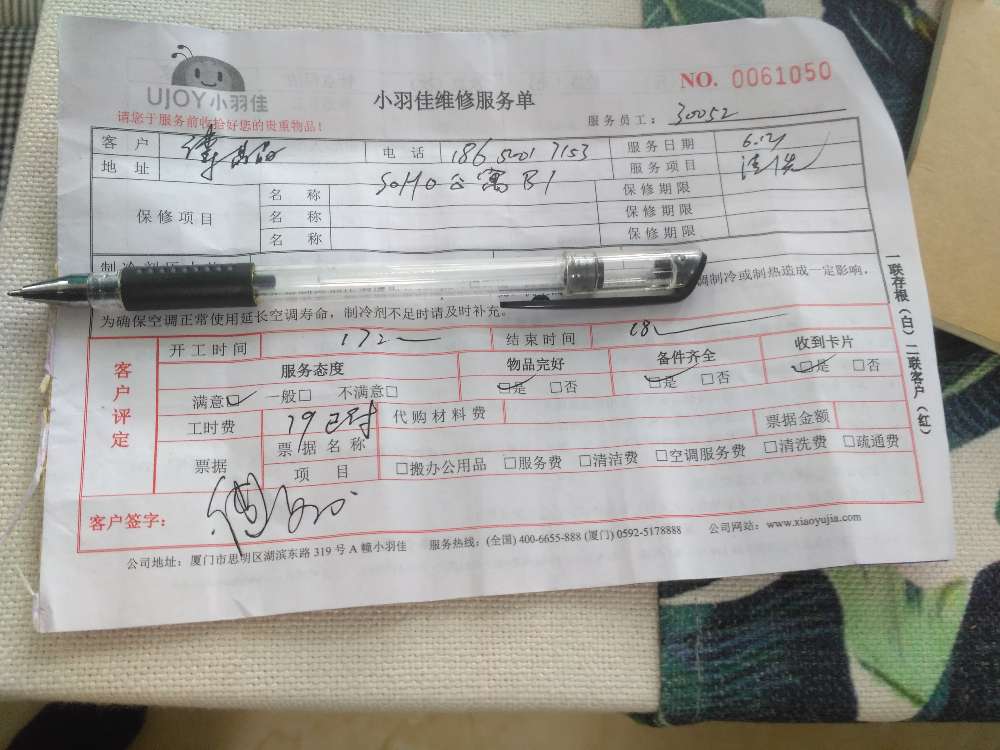 UJOY小羽佳
NO. 0061050
小羽佳维修服务单
请您于服务前收拾好您的贵重物品!
服务员工: 30052
客户 电话 186 5001 7153 服务日期 6.21
地址 SOHO公寓 B1 服务项目 清洗
保修项目 名称 保修期限
名称 保修期限
名称 保修期限
调制冷或制热造成一定影响,
为确保空调正常使用延长空调寿命,制冷剂不足时请及时补充。
一联存根(白)二联客户(红)
客户评定
开工时间 172 结束时间 18
服务态度 物品完好 备件齐全 收到卡片
满意☑ 一般☐ 不满意☐ ☑是 ☐否 ☑是 ☐否 ☑是 ☐否
工时费 79 已付 代购材料费 票据金额
票据 票据名称
项目 ☐搬办公用品 ☐服务费 ☐清洁费 ☐空调服务费 ☐清洗费 ☐疏通费
客户签字:
公司地址:厦门市思明区湖滨东路 319 号 A 幢小羽佳 服务热线:(全国) 400-6655-888 (厦门) 0592-5178888 公司网站:www.xiaoyujia.com